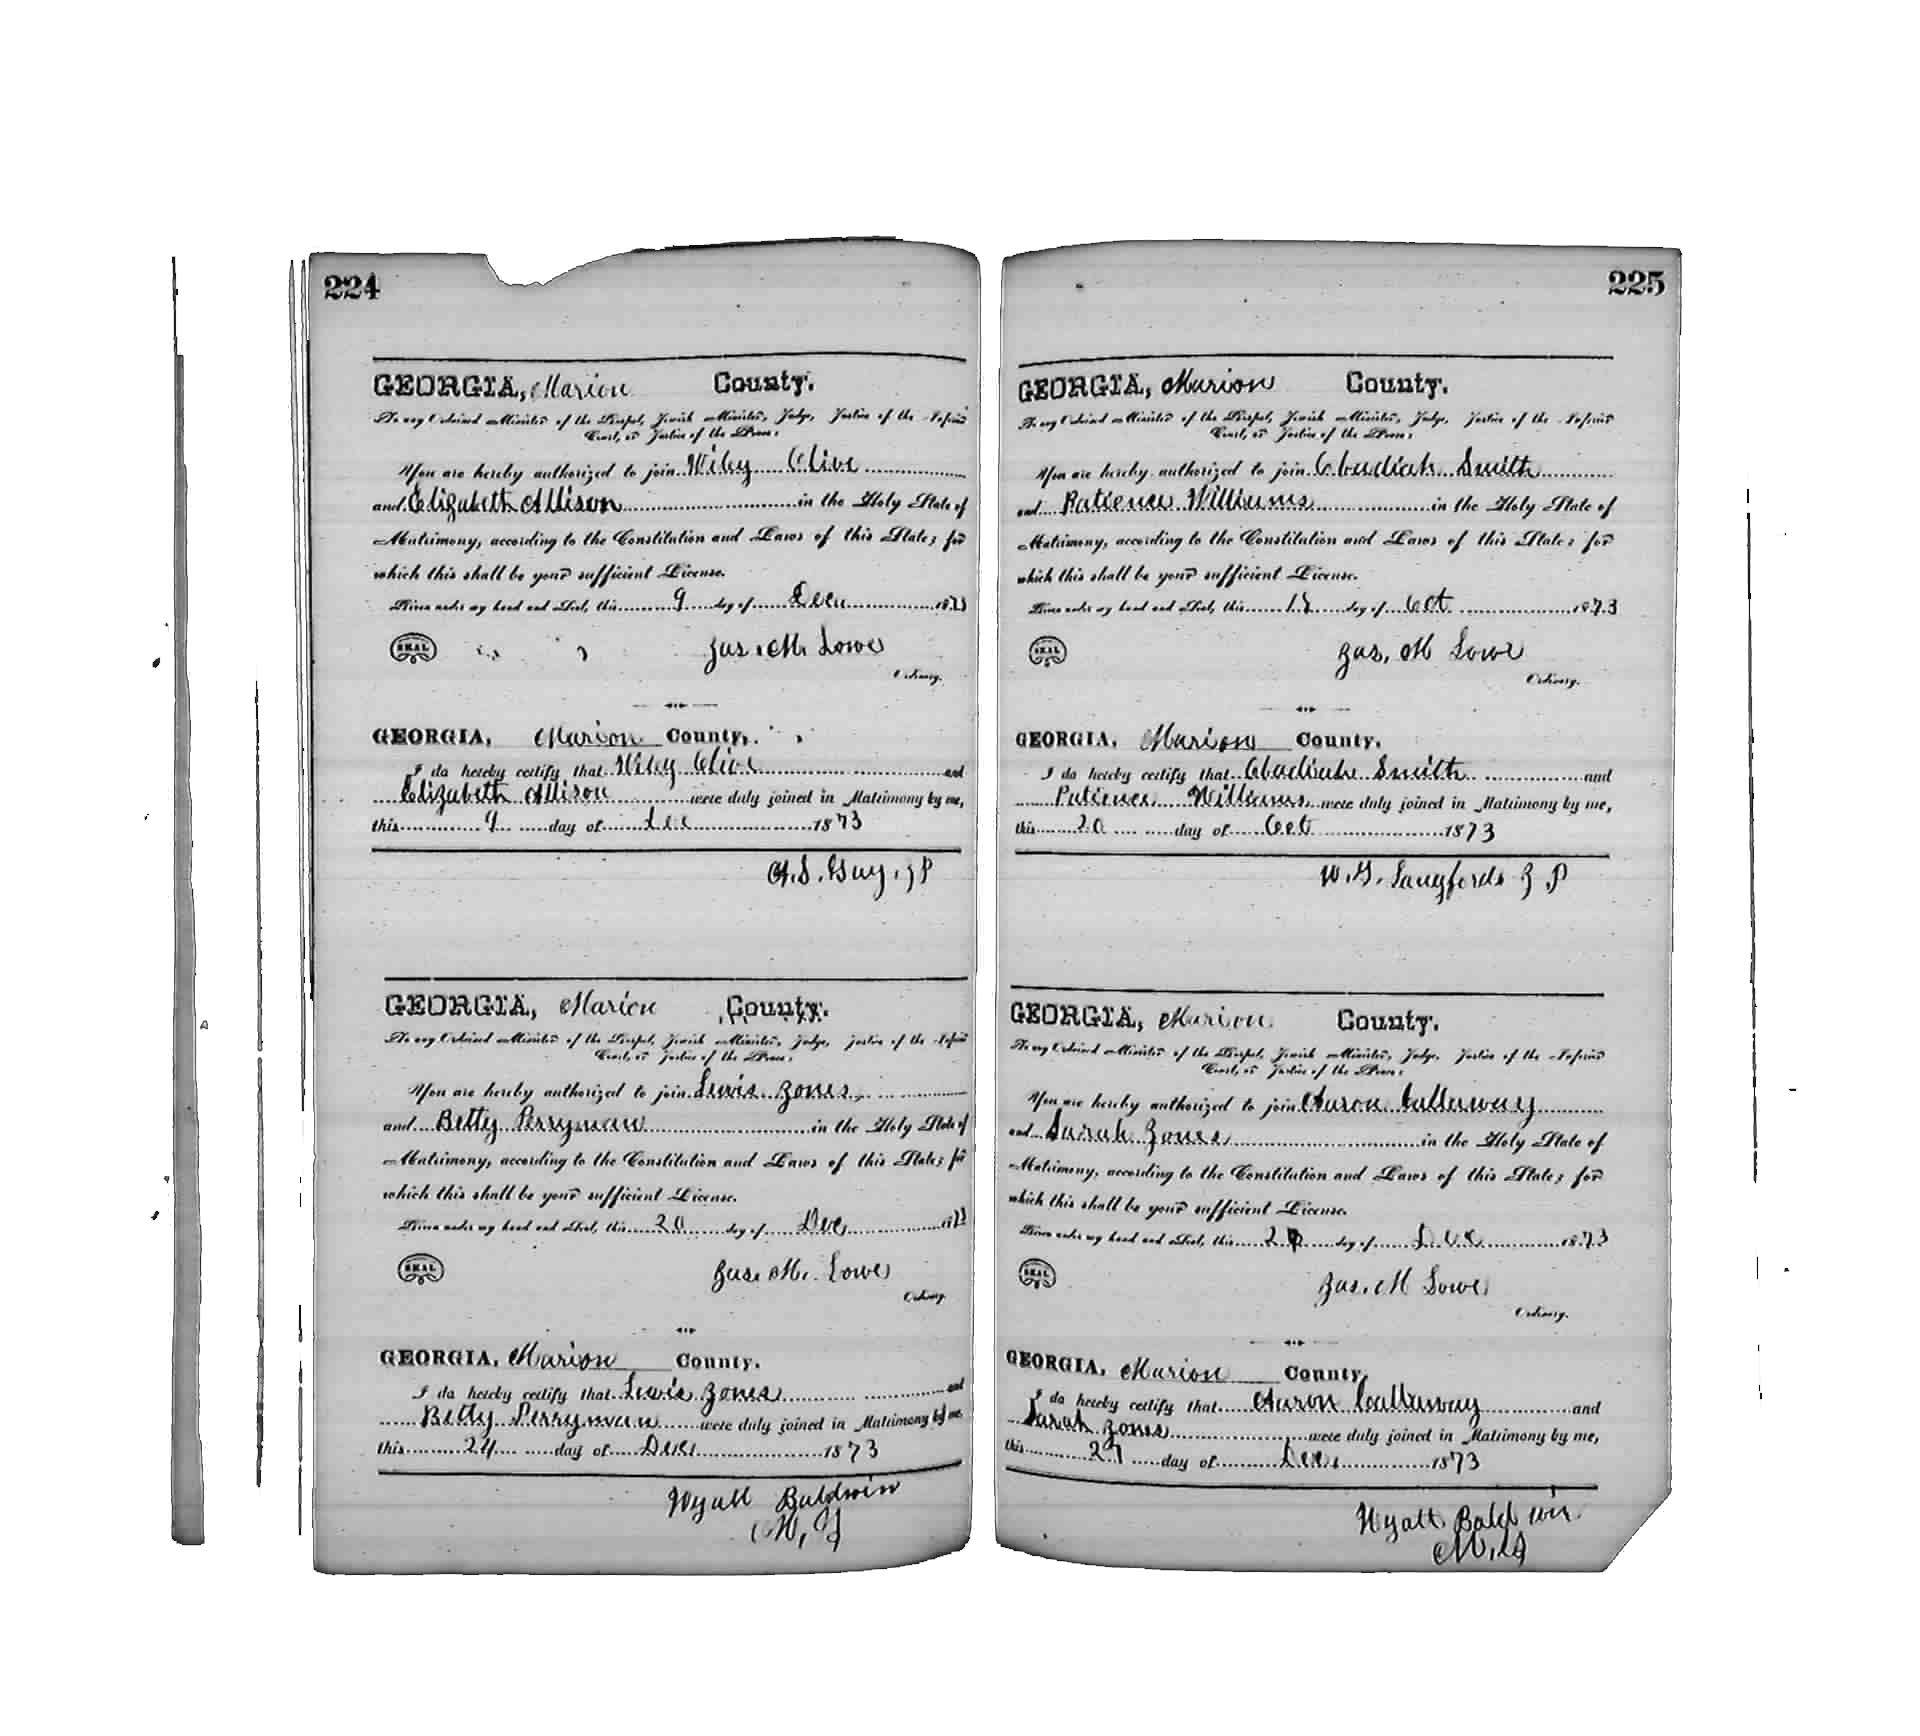 224
GEORGIA, Marion County.
To any Ordained Minister of the Gospel, Jewish Minister, Judge, Justice of the Inferior
Court, or Justice of the Peace:
You are hereby authorized to join Wiley Olive
and Elizabeth Allison in the Holy State of
Matrimony, according to the Constitution and Laws of this State; for
which this shall be your sufficient License.
Given under my hand and Seal, this 9 day of Dec 1873
SEAL
Jas. M. Lowe
Ordinary.
GEORGIA, Marion County,
I do hereby certify that Wiley Olive and
Elizabeth Allison were duly joined in Matrimony by me,
this 9 day of Dec 1873
A. S. Guy, J P
GEORGIA, Marion County.
To any Ordained Minister of the Gospel, Jewish Minister, Judge, Justice of the Inferior
Court, or Justice of the Peace:
You are hereby authorized to join Lewis Jones
and Betty Perryman in the Holy State of
Matrimony, according to the Constitution and Laws of this State; for
which this shall be your sufficient License.
Given under my hand and Seal, this 20 day of Dec 1873
SEAL
Jas. M. Lowe
Ordinary.
GEORGIA, Marion County.
I do hereby certify that Lewis Jones and
Betty Perryman were duly joined in Matrimony by me
this 24 day of Dec 1873
Wyatt Baldwin
M, G
225
GEORGIA, Marion County.
To any Ordained Minister of the Gospel, Jewish Minister, Judge, Justice of the Inferior
Court, or Justice of the Peace:
You are hereby authorized to join Obadiah Smith
and Patience Williams in the Holy State of
Matrimony, according to the Constitution and Laws of this State; for
which this shall be your sufficient License.
Given under my hand and Seal, this 18 day of Oct 1873
SEAL
Jas. M Lowe
Ordinary.
GEORGIA, Marion County.
I do hereby certify that Obadiah Smith and
Patience Williams were duly joined in Matrimony by me,
this 20 day of Oct 1873
W. G. Langford J P
GEORGIA, Marion County.
To any Ordained Minister of the Gospel, Jewish Minister, Judge, Justice of the Inferior
Court, or Justice of the Peace:
You are hereby authorized to join Aaron Callaway
and Sarah Jones in the Holy State of
Matrimony, according to the Constitution and Laws of this State; for
which this shall be your sufficient License.
Given under my hand and Seal, this day of Dec 1873
SEAL
Jas. M Lowe
Ordinary.
GEORGIA, Marion County,
I do hereby certify that Aaron Callaway and
Sarah Jones were duly joined in Matrimony by me,
this 27 day of Dec, 1873
Wyatt Baldwin
M, G